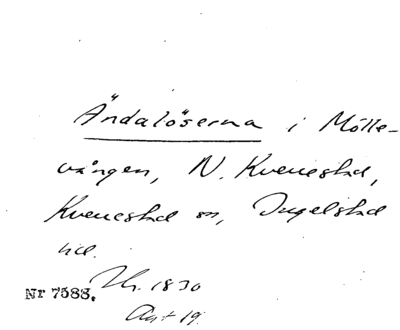 Ändalöserna i Mölle-
vången, N. Kvenestad,
Kvenestad sn, Ingelstad
hd.
Nr 7588. 1830
19.